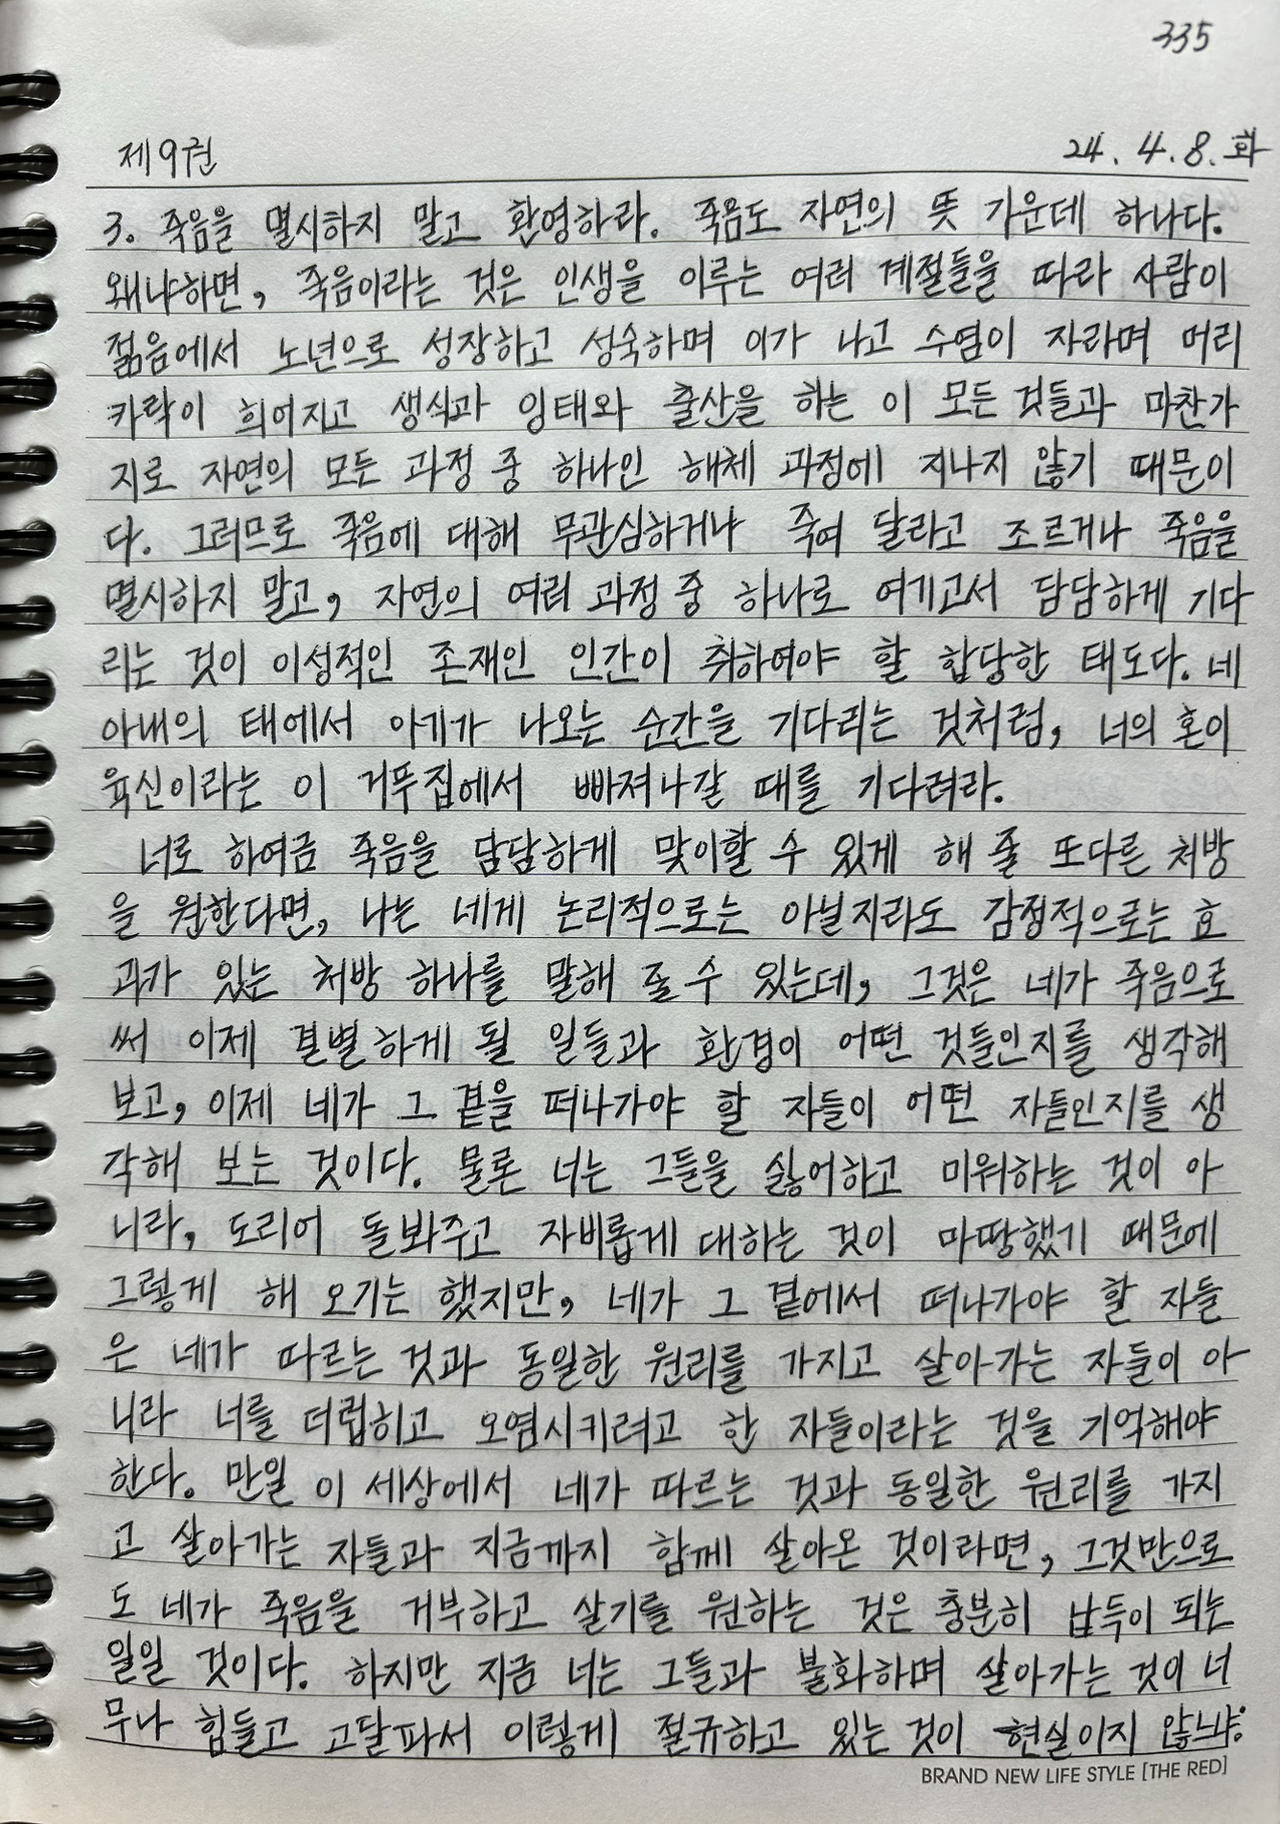 335
제9권 24. 4. 8. 화
3. 죽음을 멸시하지 말고 환영하라. 죽음도 자연의 뜻 가운데 하나다.
왜냐하면, 죽음이라는 것은 인생을 이루는 여러 계절들을 따라 사람이
젊음에서 노년으로 성장하고 성숙하며 이가 나고 수염이 자라며 머리
카락이 희어지고 생식과 잉태와 출산을 하는 이 모든 것들과 마찬가
지로 자연의 모든 과정 중 하나인 해체 과정에 지나지 않기 때문이
다. 그러므로 죽음에 대해 무관심하거나 죽여 달라고 조르거나 죽음을
멸시하지 말고, 자연의 여러 과정 중 하나로 여기고서 담담하게 기다
리는 것이 이성적인 존재인 인간이 취하여야 할 합당한 태도다. 네
아내의 태에서 아기가 나오는 순간을 기다리는 것처럼, 너의 혼이
육신이라는 이 거푸집에서 빠져나갈 때를 기다려라.
너로 하여금 죽음을 담담하게 맞이할 수 있게 해 줄 또다른 처방
을 원한다면, 나는 네게 논리적으로는 아닐지라도 감정적으로는 효
과가 있는 처방 하나를 말해 줄 수 있는데, 그것은 네가 죽음으로
써 이제 결별하게 될 일들과 환경이 어떤 것들인지를 생각해
보고, 이제 네가 그 곁을 떠나가야 할 자들이 어떤 자들인지를 생
각해 보는 것이다. 물론 너는 그들을 싫어하고 미워하는 것이 아
니라, 도리어 돌봐주고 자비롭게 대하는 것이 마땅했기 때문에
그렇게 해 오기는 했지만, 네가 그 곁에서 떠나가야 할 자들
은 네가 따르는 것과 동일한 원리를 가지고 살아가는 자들이 아
니라 너를 더럽히고 오염시키려고 한 자들이라는 것을 기억해야
한다. 만일 이 세상에서 네가 따르는 것과 동일한 원리를 가지
고 살아가는 자들과 지금까지 함께 살아온 것이라면, 그것만으로
도 네가 죽음을 거부하고 살기를 원하는 것은 충분히 납득이 되는
일일 것이다. 하지만 지금 너는 그들과 불화하며 살아가는 것이 너
무나 힘들고 고달파서 이렇게 절규하고 있는 것이 현실이지 않느냐:
BRAND NEW LIFE STYLE [THE RED]